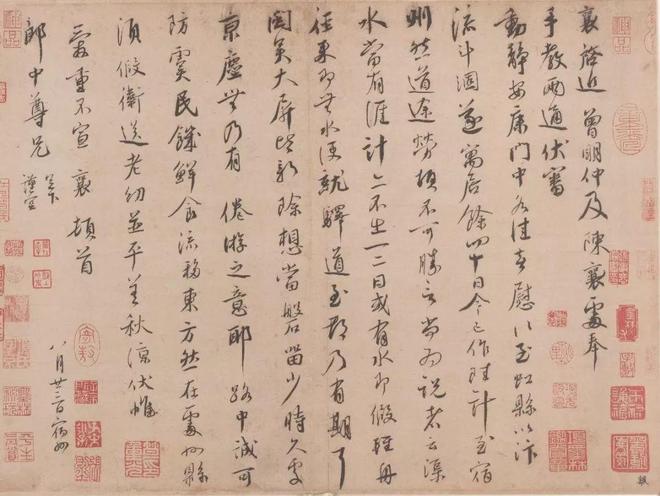 襄啓近曾明仲及陳襄處奉
手教兩通伏審
動靜安康門中各佳喜慰以至虹縣以汴
流斗涸遂寓居餘四十日今已作陸計至宿
州然道途勞頓不可勝言尚為說者云渠
水當有涯計亦不出一二日或有水即假輕舟
徑來即無水便就驛道至都乃有期耳
閩吳大屏皆新除想當磐留少時久處
京塵無乃有倦遊之意耶路中誠可
防虞民饑鮮食流移東方然在處州縣
須假衛送老幼並平善秋涼伏惟
愛重不宣襄頓首
郎中尊兄足下
謹空
八月廿三日宿州